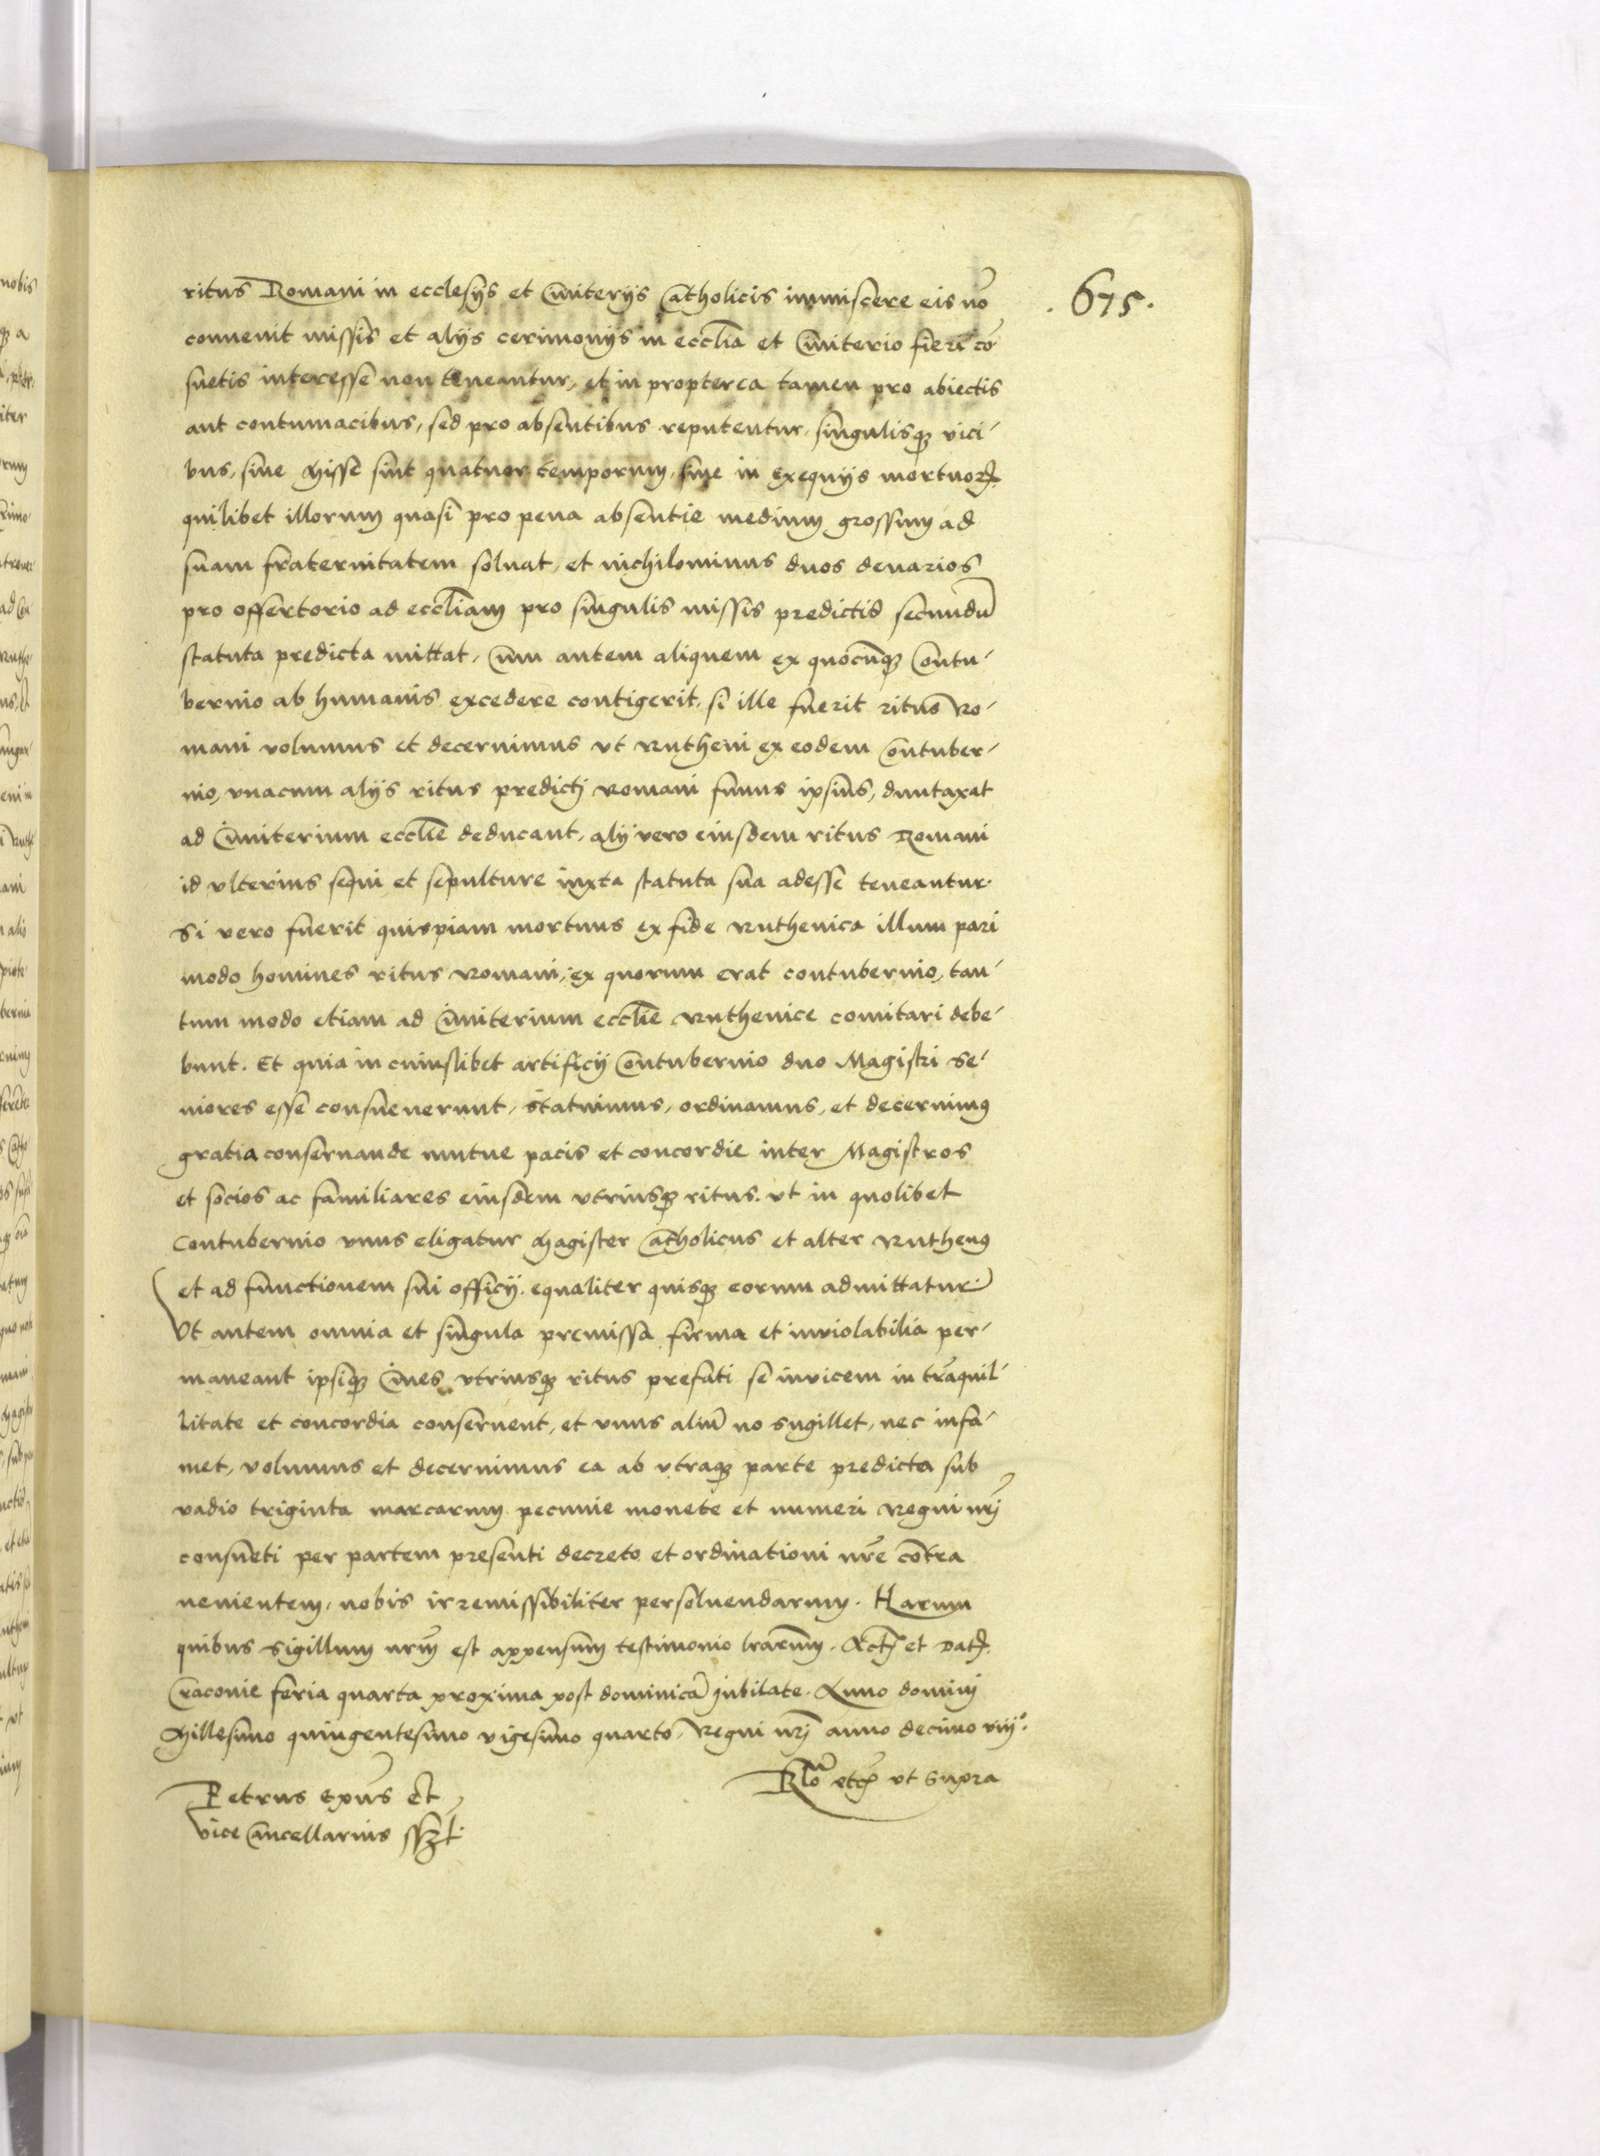 . 675 .
ritus Romani in ecclesijs et Cimiterijs Catholicis immiscere eis nō
convenit missis et alijs cerimonijs in ecclīa et Cimiterio fieri cō
suetis interesse non teneantur, et in propterea tamen pro abiectis
aut contumacibus, sed pro absentibus reputentur, singulisqȝ vici-
bus, siue Misse sint quatuor temporum, siue in exequijs mortuoꝝ
quilibet illorum quasi pro pena absentie medium grossum ad
suam fraternitatem soluat, et nichilominus duos denarios
pro offertorio ad eccliam pro singulis missis predictis secundū
statuta predicta mittat, Cum autem aliquem ex quocūqȝ Contu-
bernio ab humanis excedere contigerit, si ille fuerit ritus Ro-
mani volumus et decernimus vt Rutheni ex eodem Contuber-
nio, vnacum alijs ritus predicti Romani funus ipsius, duntaxat
ad Cimiterium ecclīe deducant, alij vero eiusdem ritus Romani
id vlterius sequi et sepulture iuxta statuta sua adesse teneantur.
Si vero fuerit quispiam mortuus ex fide Ruthenica illum pari
modo homines ritus Romani, ex quorum erat contubernio, tan-
tum modo etiam ad Cimiterium ecclīe Ruthenice comitari debe-
bunt. Et quia in cuiuslibet artificij Contubernio duo Magistri Se-
niores esse consueuerunt, Statuimus, ordinamus, et decernimꝰ
gratia conseruande mutue pacis et concordie inter Magistros
et socios ac familiares eiusdem vtriusqȝ ritus. vt in quolibet
Contubernio vnus eligatur Magister Catholicus et alter Ruthenꝰ
et ad functionem sui officij equaliter quisqȝ eorum admittatur.
Vt autem omnia et singula premissa firma et inviolabilia per-
maneant ipsiqȝ Ciues vtriusqȝ ritus prefati se invicem in tr̄aquil-
litate et concordia conseruent, et vnus aliū no sugillet, nec infa-
met, volumus et decernimus ea ab vtraqȝ parte predicta sub
vadio triginta marcarum pecunie monete et numeri Regni nr̄j
consueti per partem presenti decreto et ordinationi nr̄e contra
uenientem, nobis irremissibiliter persoluendarum. Harum
quibus Sigillum nr̄m est appensum testimonio lr̄arum. Act et Dat
Cracouie feria quarta proxima post dominicā jubilate. Anno dominj
Millesimo quingentesimo vigesimo quarto, Regni nr̄j anno decimo viijº.
Rlō etc vt Supra
Petrus Ep̄us et
vice Cancellarius sszt